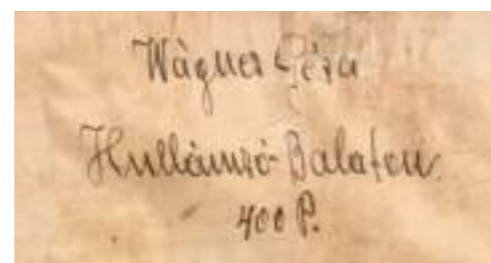 Wágner Géza
Hullámzó Balaton.
400 P.